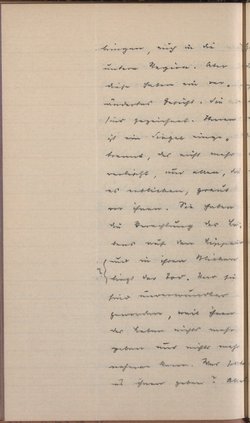 bringen, auch in die
untere Region. Aber
diese haben ein ver-
ändertes Gesicht. Sie
sind gezeichnet. Ihnen
ist ein Siegel einge-
brannt, das nicht mehr
verlischt, und allen, die
es erblicken, graut
vor ihnen. Sie haben
die Verachtung des Le-
bens auf den Lippen
und in ihren Blicken
liegt der Tod. Nur sie
sind unverwundbar
geworden, weil ihnen
das Leben nichts mehr
geben und nichts mehr
nehmen kann. Was sollte
es ihnen geben? Aber